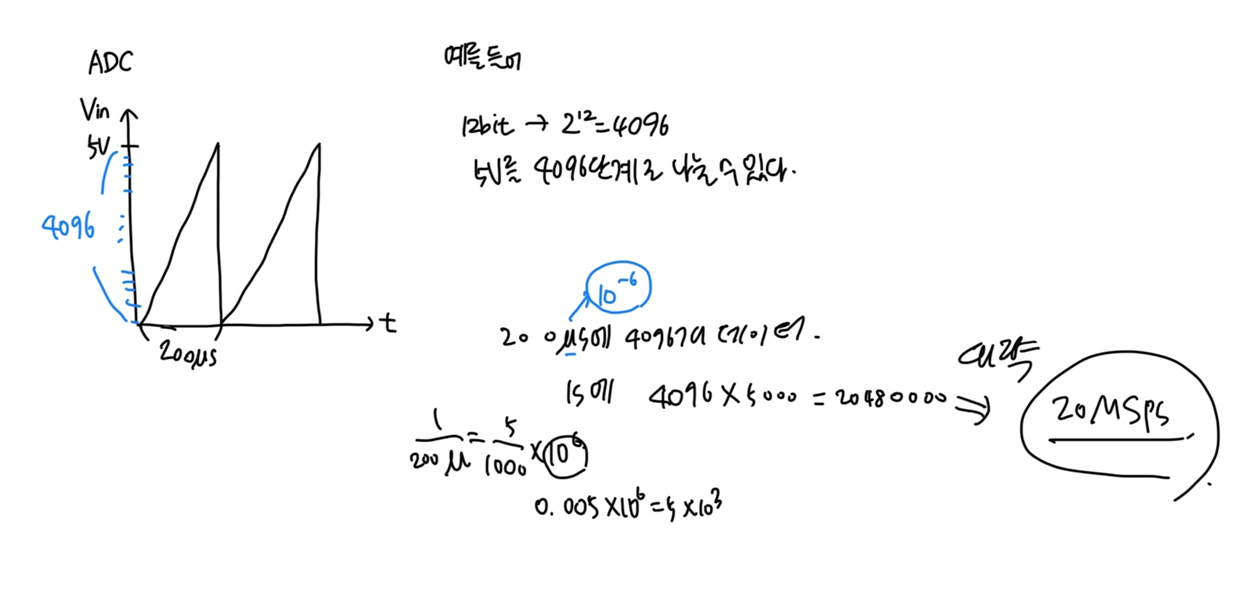 ADC
Vin
5V
4096
200μs
t
예를들어
12bit → 2¹²=4096
5V를 4096단계로 나눌 수 있다.
10⁻⁶
200μs에 4096개 데이터.
1s에 4096×5000=20480000 ⇒
대략
20MSps
1/200μ = 5/1000 × 10⁶
0.005×10⁶=5×10³